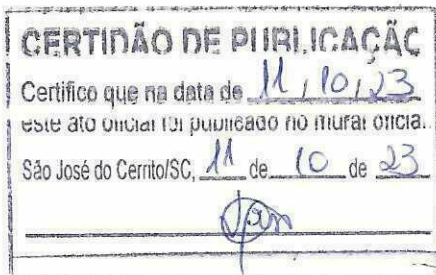 CERTIDÃO DE PUBLICAÇÃO
Certifico que na data de 11, 10, 23
este ato oficial foi publicado no mural oficial.
São José do Cerrito/SC, 11 de 10 de 23